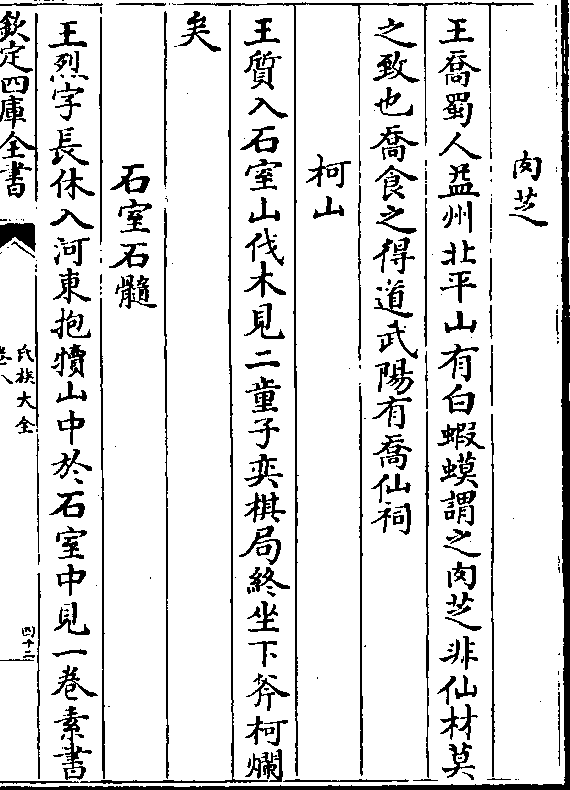 肉芝
王喬蜀人益州北平山有白蝦蟆謂之肉芝非仙材莫
之致也喬食之得道武陽有喬仙祠
柯山
王質入石室山伐木見二童子奕棋局終坐下斧柯爛
矣
石室石髓
王烈字長休入河東抱犢山中於石室中見一卷素書
欽定四庫全書
氏族大全
卷八
四十二